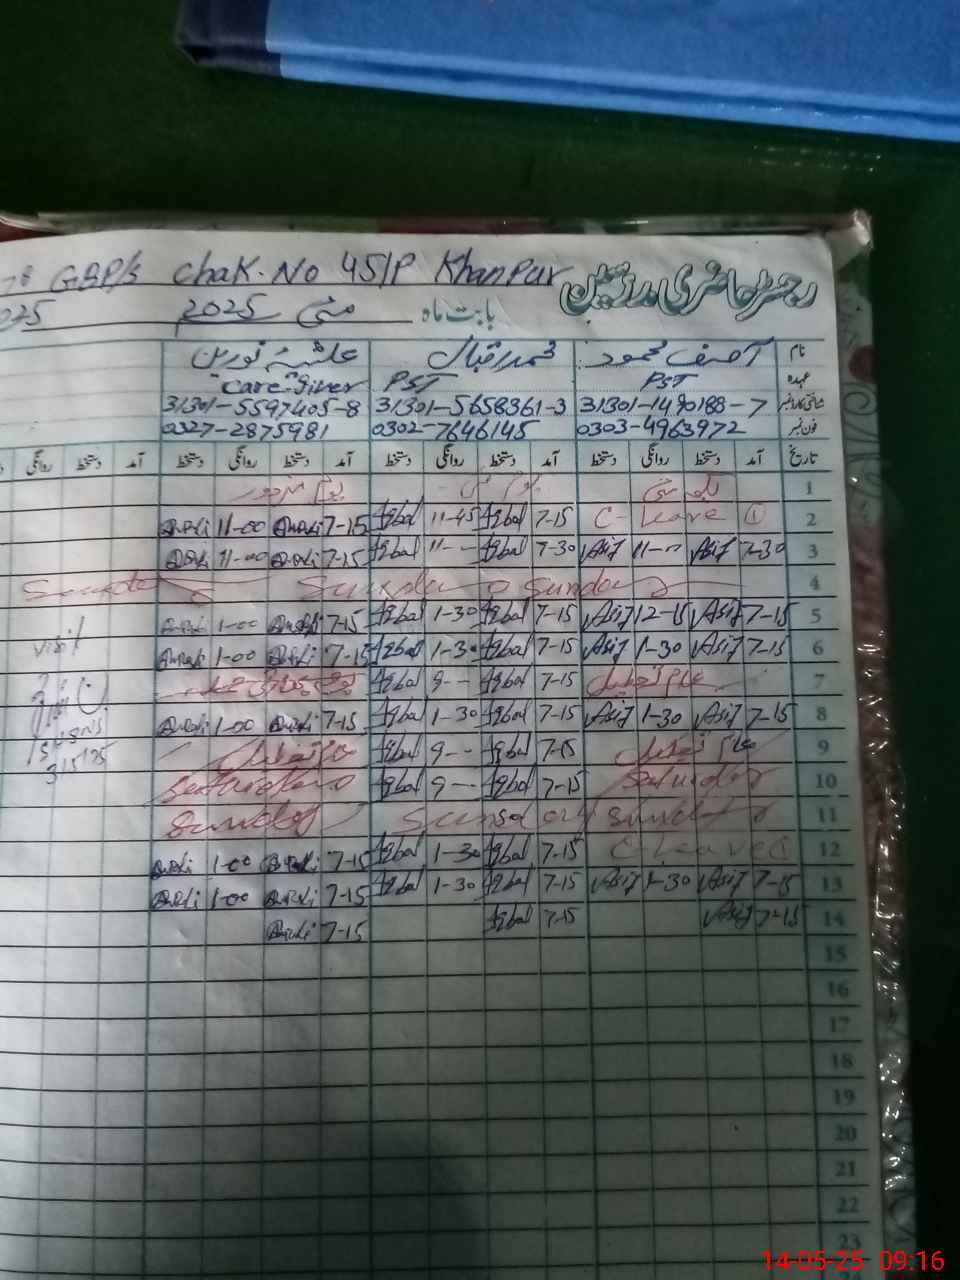 GBP/S Chak. No 45/P Khanpur رجسٹر حاضری مدرسین
بابت ماہ مئی 2025
نام آصف محمود محمد اقبال عائشہ نورین
عہدہ PST PST "Care giver"
شناختی کارڈ نمبر 31301-1490188-7 31301-5658361-3 31301-5597405-8
فون نمبر 0303-4963972 0302-7646145 0327-2875981
تاریخ آمد دستخط روانگی دستخط آمد دستخط روانگی دستخط آمد دستخط روانگی دستخط آمد دستخط روانگی
1
2 C-Leave ① 7-15 Iqbal 11-45 Iqbal 7-15 11-00
3 7-30 Asif 11-- Asif 7-30 Iqbal 11-- Iqbal 7-15 11-00
4 Sunday Sunday Sunday
5 7-15 Asif 12-15 Asif 7-15 Iqbal 1-30 Iqbal 7-15 1-00
6 7-15 Asif 1-30 Asif 7-15 Iqbal 1-30 Iqbal 7-15 1-00 visit
7 عام تعطیل 7-15 Iqbal 9-- Iqbal
8 7-15 Asif 1-30 Asif 7-15 Iqbal 1-30 Iqbal 7-15 1-00
9 عام تعطیل 7-15 Iqbal 9-- Iqbal عام تعطیل
10 Saturday 7-15 Iqbal 9-- Iqbal Saturday
11 Sunday Sunday Sunday
12 C-Leave 7-15 Iqbal 1-30 Iqbal 7-15 1-00
13 7-15 Asif 1-30 Asif 7-15 Iqbal 1-30 Iqbal 7-15 1-00
14 7-15 Asif 7-15 Iqbal 7-15
15
16
17
18
19
20
21
22
23
14-05-25 09:16